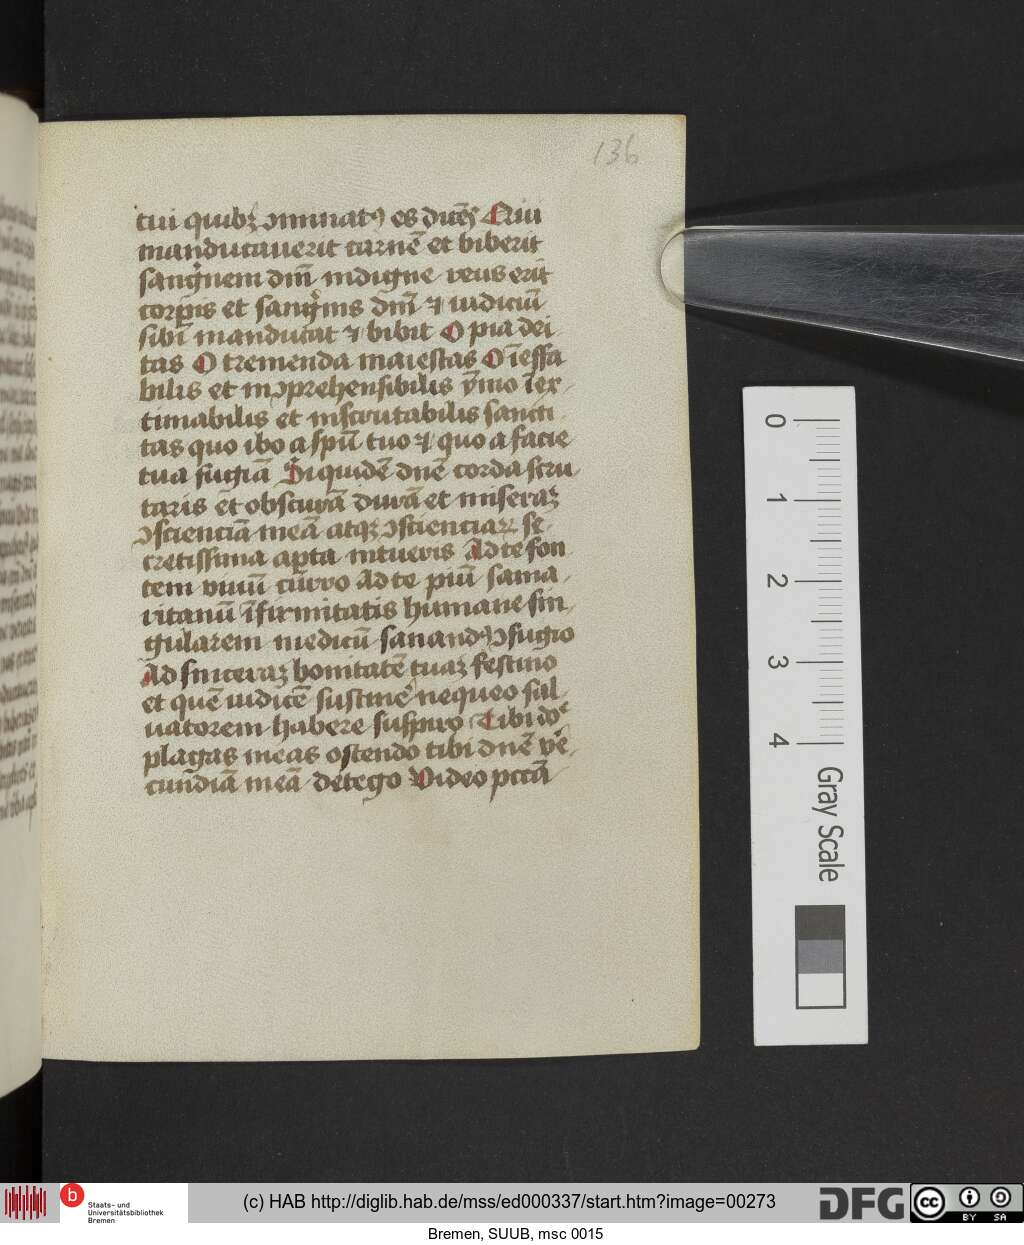 136
tui quibꝫ ꝯminatꝰ es dicēs Qui
manducauerit carnē et biberit
sangͥnem dnī indigne reus erit
corpis et sangͥnis dnī ⁊ iudiciū
sibi manducat ⁊ bibit O pia dei
tas O tremenda maiestas O ineffa
bilis et inꝯprehensibilis īmo inex-
timabilis et inscrutabilis sancti-
tas quo ibo a spū tuo ⁊ quo a facie
tua fugiā Siquidē dnē corda scru-
taris et obscurā durā et miserāꝫ
ꝯscienciā meā atqꝫ ꝯscienciaꝝ se-
cretissima apta intueris Ad te fon
tem viuū curro Ad te piū sama-
ritanū īfirmitatis humane sin-
gularem medicū sanandꝰ ꝯfugio
Ad sinceraꝫ bonitatē tuaꝫ festino
et quē iudicē sustinē nequeo sal
uatorem habere suspiro Tibi dnē
plagas meas ostendo tibi dnē ve-
cundiā meā detego Video pccā
0
1
2
3
4
Gray Scale
b Staats- und
Universitätsbibliothek
Bremen
(c) HAB http://diglib.hab.de/mss/ed000337/start.htm?image=00273
DFG
cc BY SA
Bremen, SUUB, msc 0015